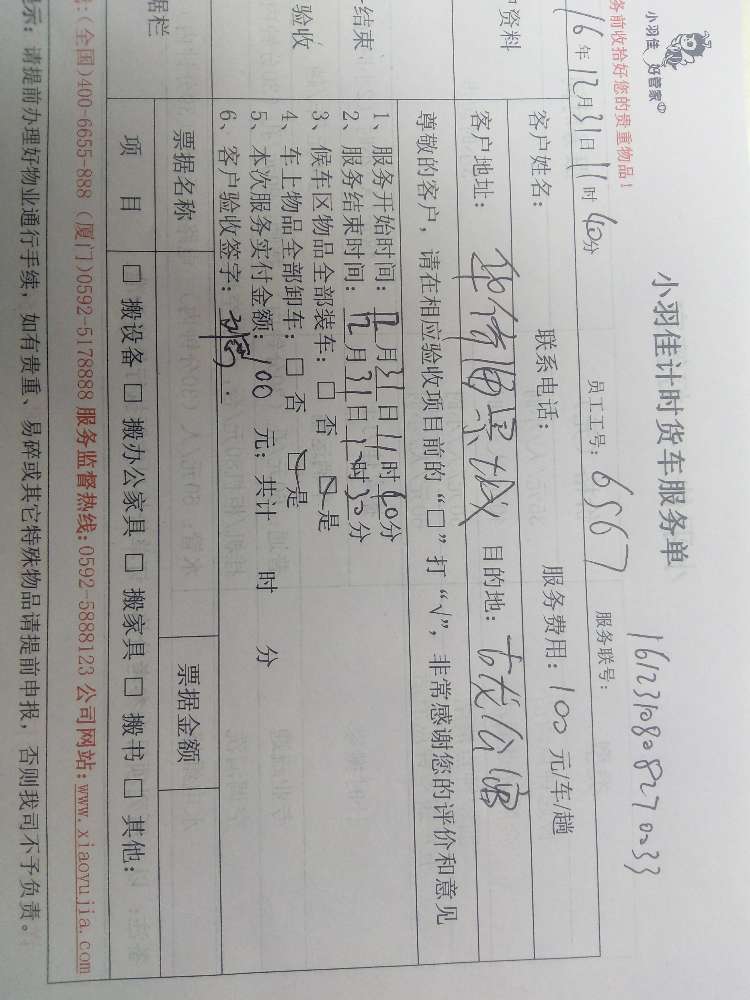 小羽佳 好管家
小羽佳计时货车服务单
务前收拾好您的贵重物品!
16年12月31日11时40分 员工工号: 6567 服务联号: 1612310808270233
户资料
客户姓名: 联系电话: 服务费用: 100 元/车/趟
客户地址: 华信海景城 目的地: 吉龙公寓
尊敬的客户, 请在相应验收项目前的“□”打“√”, 非常感谢您的评价和意见
结束
验收
1、服务开始时间: 12月31日11时40分
2、服务结束时间: 12月31日12时30分
3、候车区物品全部装车: □ 否 ☑ 是
4、车上物品全部卸车: □ 否 ☑ 是
5、本次服务实付金额: 100 元; 共计 时 分
6、客户验收签字:
据栏
票据名称 票据金额
项 目 □ 搬设备 □ 搬办公家具 □ 搬家具 □ 搬书 □ 其他:
(全国)400-6655-888 (厦门)0592-5178888 服务监督热线:0592-5888123 公司网站:www.xiaoyujia.com
示: 请提前办理好物业通行手续, 如有贵重、易碎或其它特殊物品请提前申报, 否则我司不予负责。